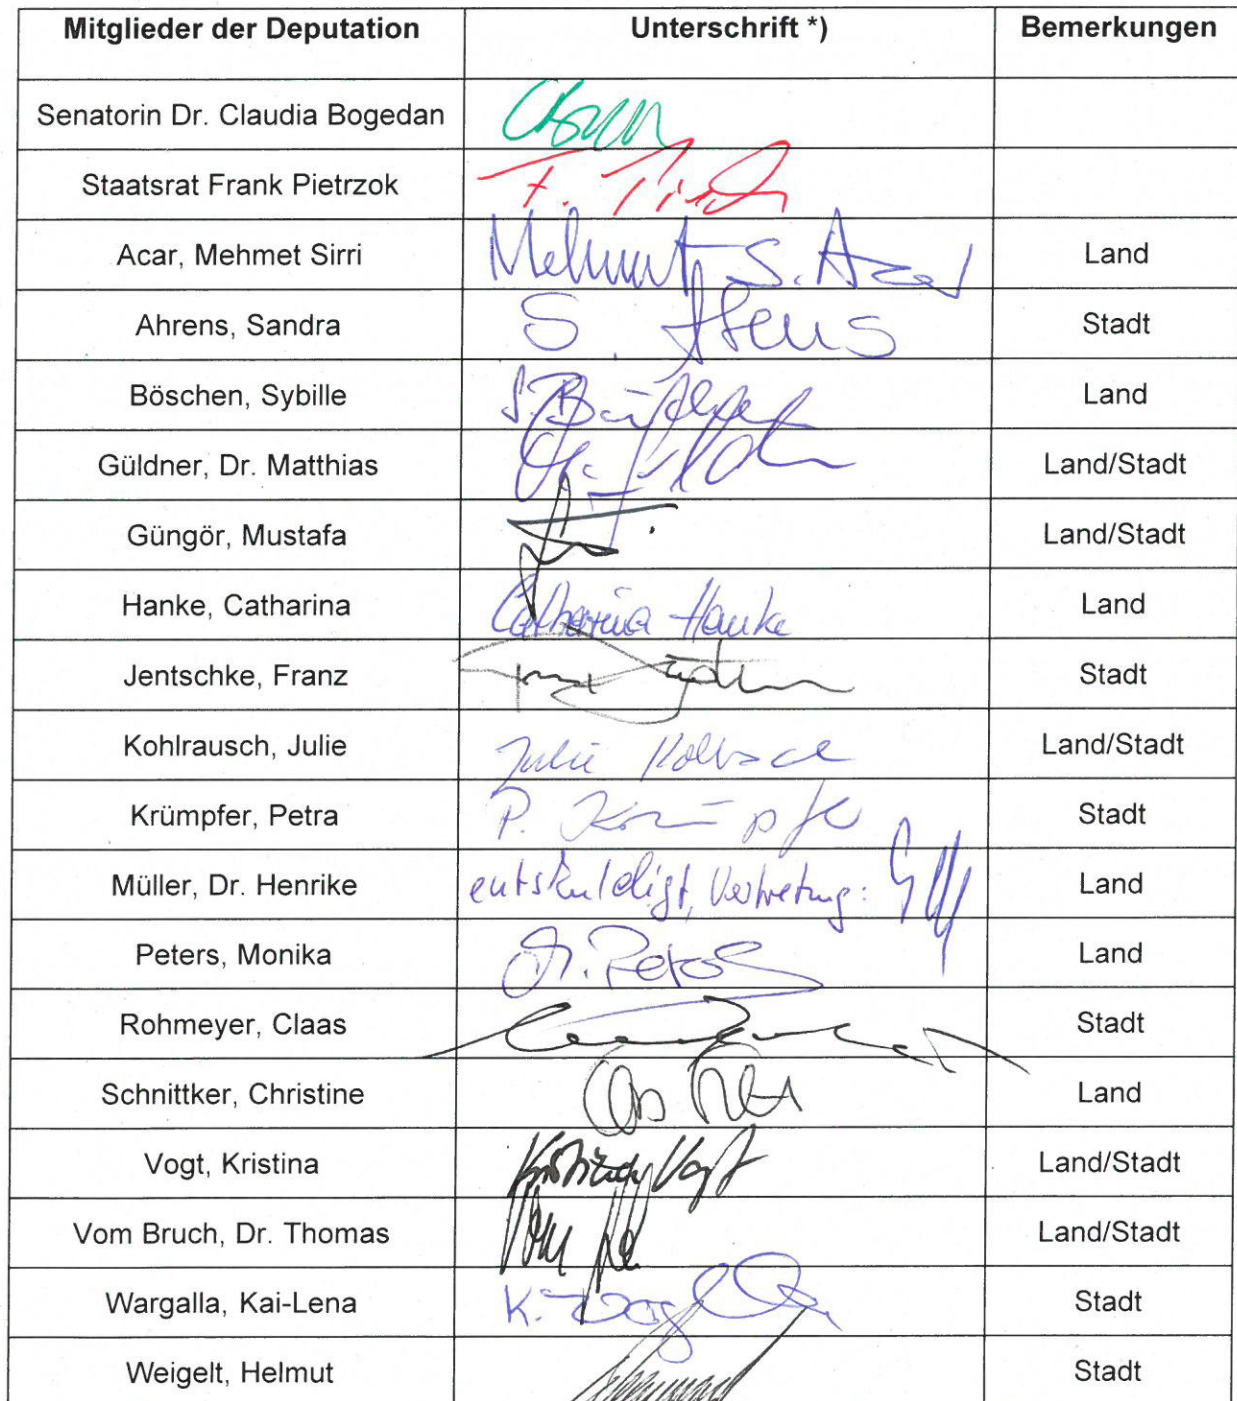 Mitglieder der Deputation Unterschrift *) Bemerkungen
Senatorin Dr. Claudia Bogedan
Staatsrat Frank Pietrzok F.
Acar, Mehmet Sirri Mehmet S. Acar Land
Ahrens, Sandra S. Ahrens Stadt
Böschen, Sybille Land
Güldner, Dr. Matthias Land/Stadt
Güngör, Mustafa Land/Stadt
Hanke, Catharina Catharina Hanke Land
Jentschke, Franz Stadt
Kohlrausch, Julie Julie Land/Stadt
Krümpfer, Petra P. Krümpfer Stadt
Müller, Dr. Henrike entschuldigt, Vertretung: Land
Peters, Monika M. Peters Land
Rohmeyer, Claas Stadt
Schnittker, Christine Land
Vogt, Kristina Kristina Vogt Land/Stadt
Vom Bruch, Dr. Thomas Land/Stadt
Wargalla, Kai-Lena K. Stadt
Weigelt, Helmut Stadt